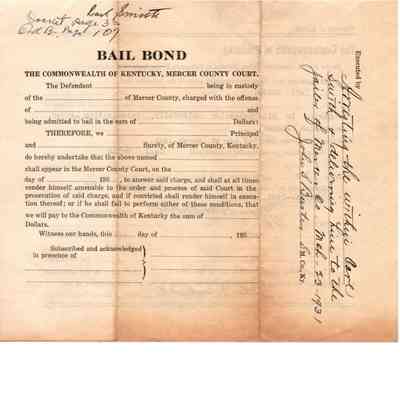 Carl Smith
Docket page 3
Ord B. Page 107
BAIL BOND
THE COMMONWEALTH OF KENTUCKY, MERCER COUNTY COURT.
The Defendant being in custody
of the of Mercer County, charged with the offense
of and
being admitted to bail in the sum of Dollars:
THEREFORE, we Principal
and Surety, of Mercer County, Kentucky,
do hereby undertake that the above named
shall appear in the Mercer County Court, on the
day of 192 , to answer said charge, and shall at all times
render himself amenable to the order and process of said Court in the
prosecution of said charge, and if convicted shall render himself in execu-
tion thereof; or if he shall fail to perform either of these conditions, that
we will pay to the Commonwealth of Kentucky the sum of
Dollars.
Witness our hands, this day of 192
Subscribed and acknowledged
in presence of
Executed by
the within Carl
Smith & delivering him to the
jailer of Mercer Co. Mch. 23-1931
John S. S. M. Co., Ky.